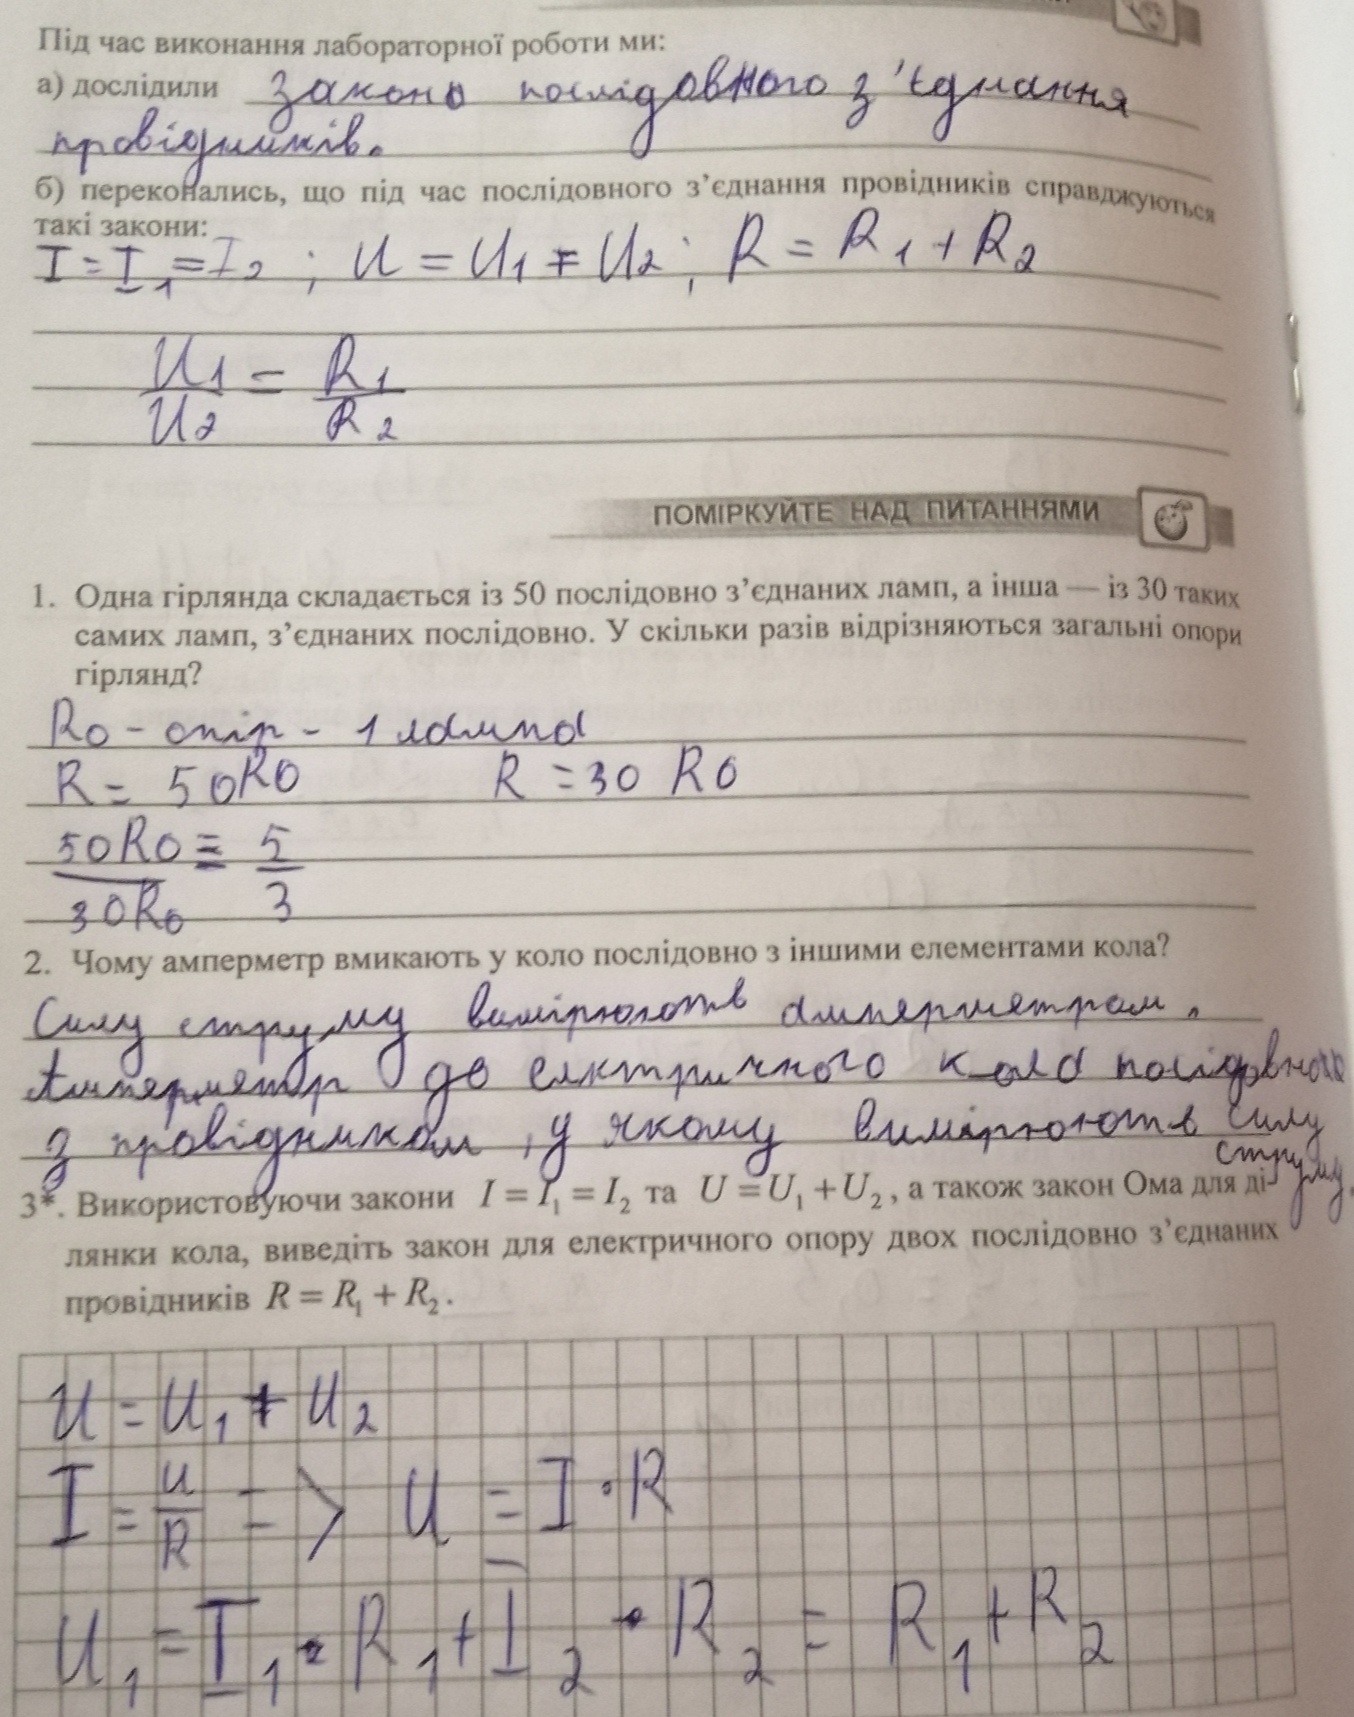 Під час виконання лабораторної роботи ми:
а) дослідили закони послідовного з'єднання
провідників.
б) переконались, що під час послідовного з’єднання провідників справджуються
такі закони:
I = I₁ = I₂ ; U = U₁ + U₂ ; R = R₁ + R₂
U₁/U₂ = R₁/R₂
ПОМІРКУЙТЕ НАД ПИТАННЯМИ
1. Одна гірлянда складається із 50 послідовно з’єднаних ламп, а інша — із 30 таких
самих ламп, з’єднаних послідовно. У скільки разів відрізняються загальні опори
гірлянд?
R0 - опір - 1 лампа
R = 50R0 R = 30 R0
50R0/30R0 = 5/3
2. Чому амперметр вмикають у коло послідовно з іншими елементами кола?
Силу струму вимірюють амперметрам.
Амперметр до електричного кола послідовного
з провідником, у якому вимірюють силу
струму.
3*. Використовуючи закони I = I₁ = I₂ та U = U₁ + U₂, а також закон Ома для ді-
лянки кола, виведіть закон для електричного опору двох послідовно з’єднаних
провідників R = R₁ + R₂.
U = U₁ + U₂
I = U/R => U = I · R
U₁ = I₁ · R₁ + I₂ · R₂ = R₁ + R₂